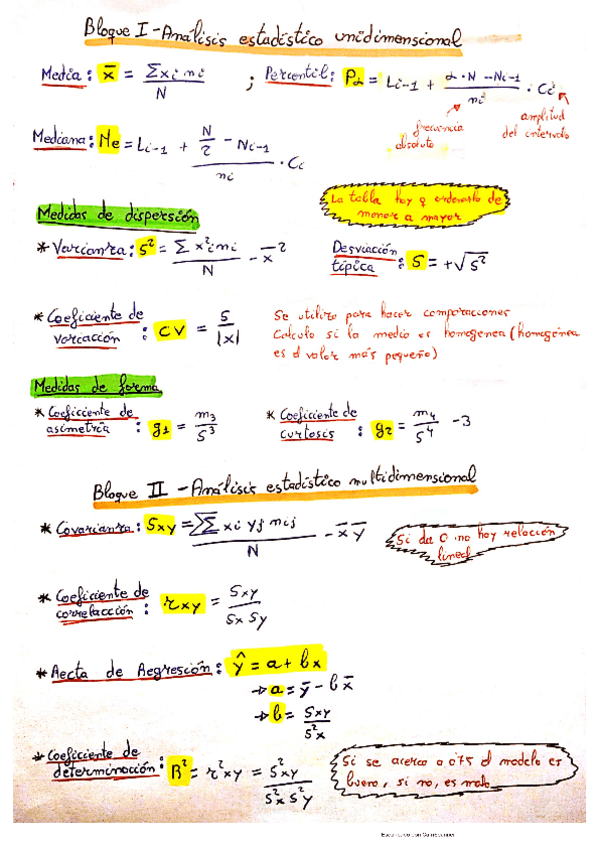 Bloque I - Análisis estadístico unidimensional
Media: x̄ = Σxi ni / N ; Percentil: Pα = Li-1 + (α·N - Ni-1) / ni · Ci
frecuencia absoluta
amplitud del intervalo
Mediana: Me = Li-1 + (N/2 - Ni-1) / ni · Ci
La tabla hay q ordenarla de
menor a mayor
Medidas de dispersión
* Varianza: S² = Σ x²i ni / N - x̄²
Desviación típica: S = +√S²
* Coeficiente de variacción: CV = S / |x|
Se utiliza para hacer comparaciones
Calcula si la media es homogenea (homogénea
es el valor más pequeño)
Medidas de forma
* Coeficiente de asimetría: g1 = m3 / S³
* Coeficiente de curtosis: g2 = m4 / S⁴ - 3
Bloque II - Análisis estadístico multidimensional
* Covarianza: Sxy = ΣΣ xi yj nij / N - x̄ ȳ
Si da 0 no hay relación
lineal
* Coeficiente de correlacción: rxy = Sxy / Sx Sy
* Recta de Regresión: ŷ = a + bx
→ a = ȳ - b x̄
→ b = Sxy / S²x
* Coeficiente de determinación: R² = r²xy = S²xy / S²x S²y
Si se acerca a 0'75 el modelo es
bueno, si no, es malo